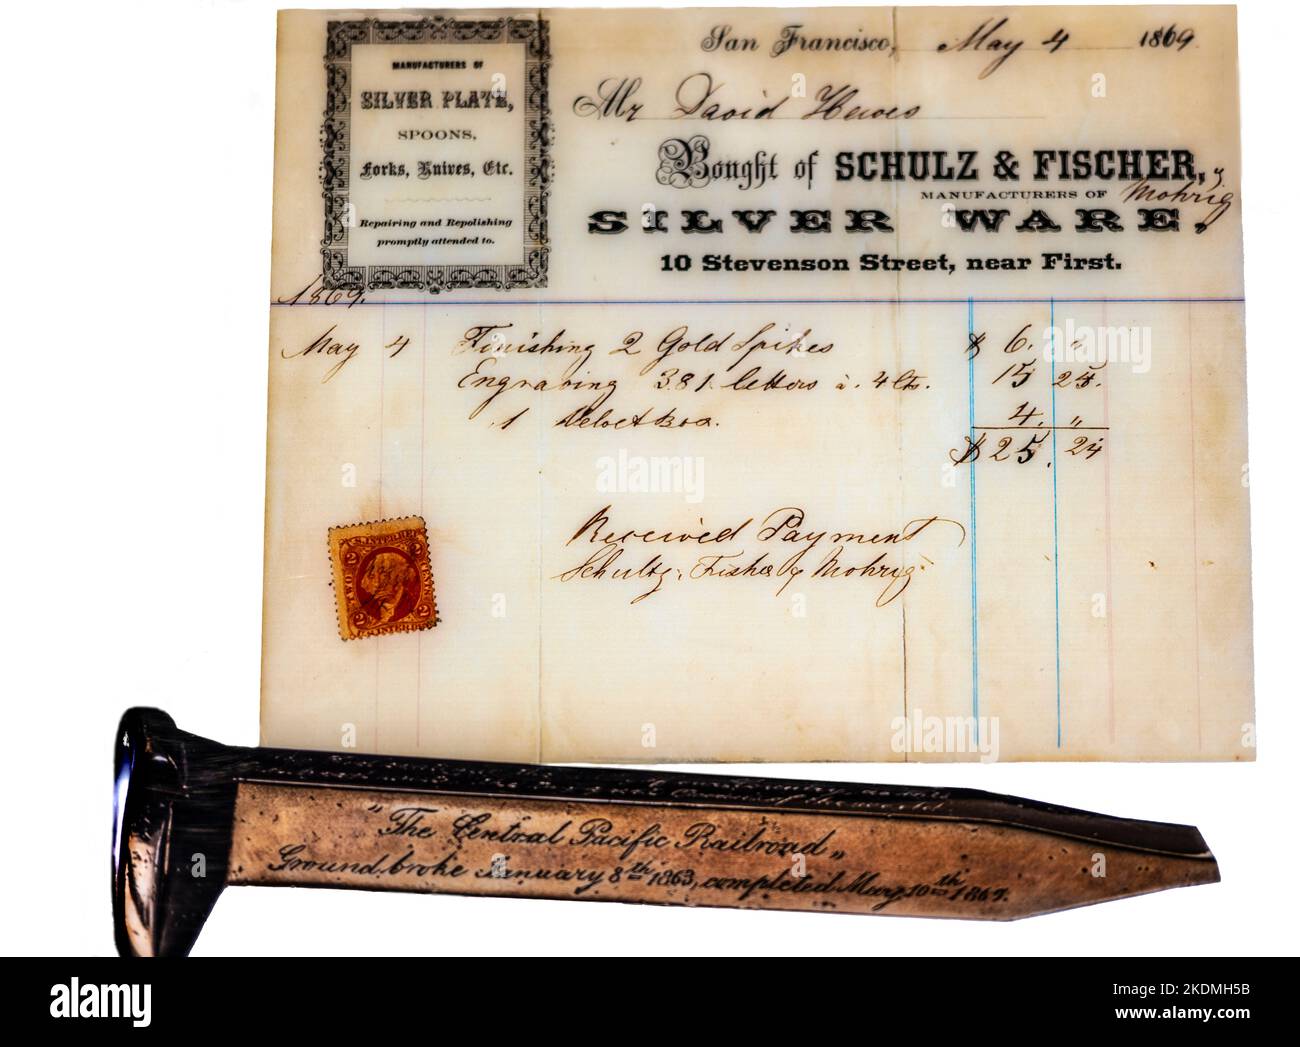 MANUFACTURERS OF
SILVER PLATE,
SPOONS,
Forks, Knives, Etc.
Repairing and Repolishing
promptly attended to.
San Francisco, May 4 1869
Mr David Hewes
Bought of SCHULZ & FISCHER, & Mohrig
MANUFACTURERS OF
SILVER WARE.
10 Stevenson Street, near First.
1869.
May 4 Finishing 2 Gold Spikes $ 6. "
Engraving 381. letters à. 4 cts. 15 24.
1 Velvet Box. 4. "
$ 25. 24
Received Payment
Schultz, Fisher & Mohrig
U.S. INTER. REV.
2 2
TWO CENTS
2 2
U.S. INTER.
"The Central Pacific Railroad"
Ground broke January 8th 1863, completed May 10th 1869.
alamy
Image ID: 2KDMH5B
www.alamy.com